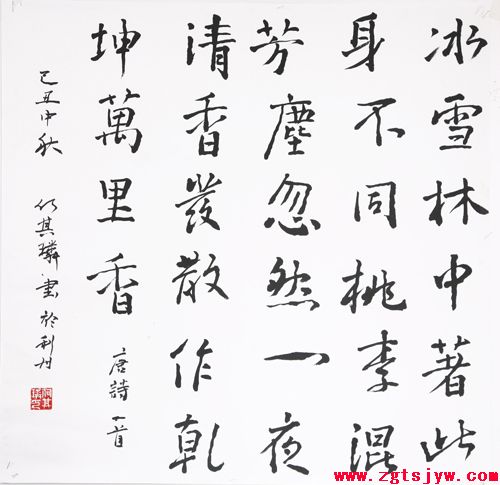 冰雪林中著此
身不同桃李混
芳塵忽然一夜
清香發散作乾
坤萬里香
唐詩 一首
己丑中秋 其璘書於利
www.zgtsjyw.com